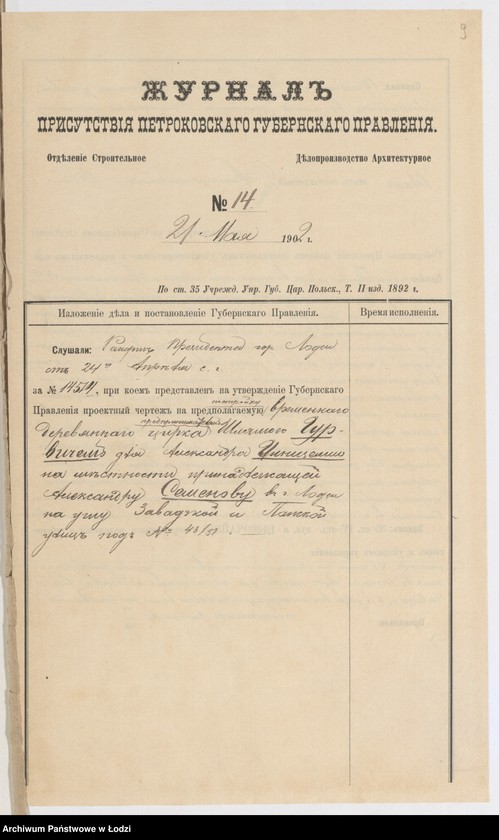 9
ЖУРНАЛЪ
ПРИСУТСТВІЯ ПЕТРОКОВСКАГО ГУБЕРНСКАГО ПРАВЛЕНІЯ.
Отдѣленіе Строительное
Дѣлопроизводство Архитектурное
№ 14
21 Мая 1902 г.
По ст. 35 Учрежд. Упр. Губ. Цар. Польск., Т. II изд. 1892 г.
Изложеніе дѣла и постановленіе Губернскаго Правленія.
Время исполненія.
Слушали: Рапортъ Президента гор. Лодзи
отъ 24го Апрѣля с. г.
за № 14514, при коемъ представленъ на утвержденіе Губернскаго
постройку
Правленія проектный чертежъ на предполагаемую временнаго
предпринимаемой
деревяннаго цирка Гур-
вичемъ для Александра Чинизелли
на мѣстности принадлежащей
Александру Семенову въ г. Лодзи
на углу Завадзкой и Панской
улицъ подъ № 43/51.
Archiwum Państwowe w Łodzi